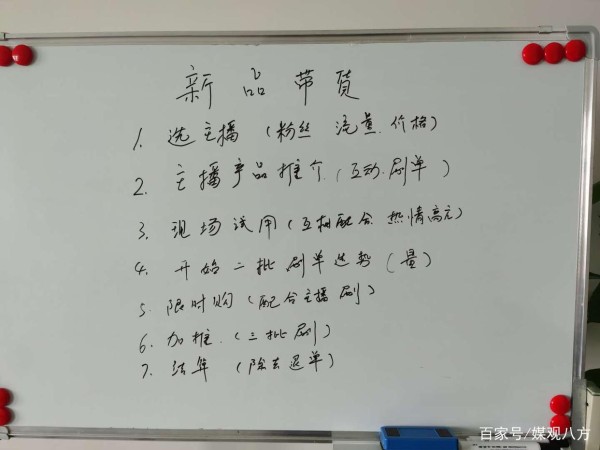 新品带货
1. 选主播（粉丝 流量 价格）
2. 主播产品推介（互动.刷单）
3. 现场试用（互相配合 热情高亢）
4. 开始二批刷单造势（量）
5. 限时购（配合主播刷）
6. 加推.（三批刷）
7. 结算（除去退单）
百家号/媒观八方